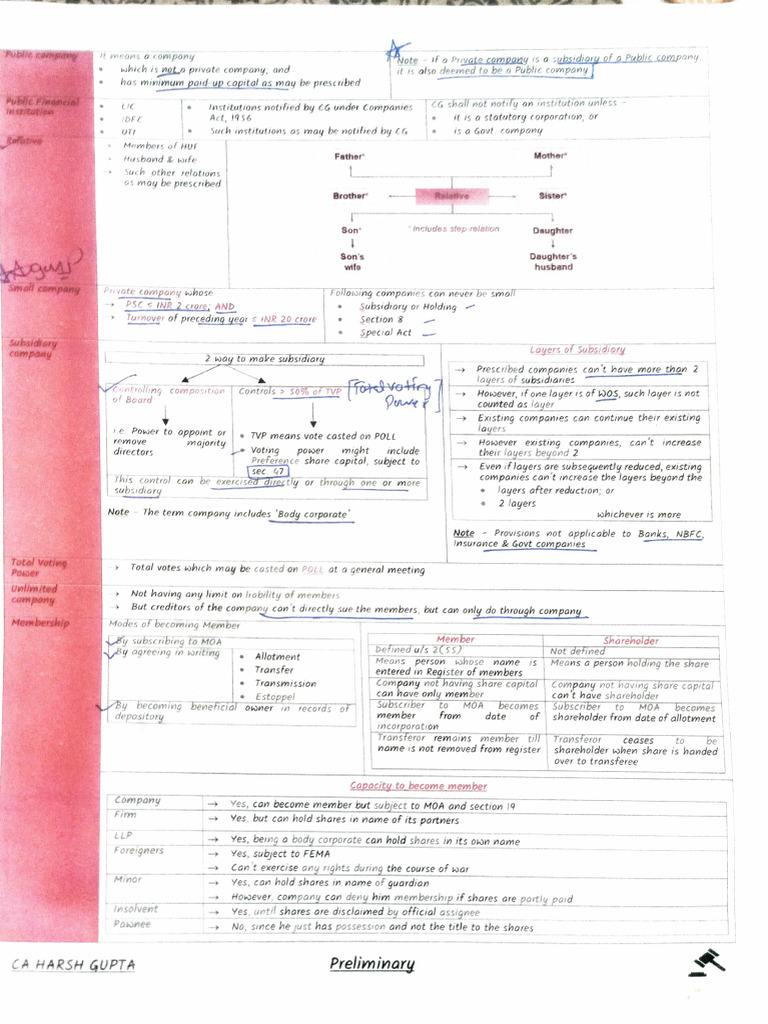 Public company
It means a company
• which is not a private company, and
• has minimum paid-up capital as may be prescribed
Note - If a Private company is a subsidiary of a Public company,
it is also deemed to be a Public company
Public Financial
Institution
• LIC
• IDFC
• UTI
• Institutions notified by CG under Companies
Act, 1956
• Such institutions as may be notified by CG
CG shall not notify an institution unless -
• it is a statutory corporation; or
• is a Govt company
Relative
- Members of HUF
- Husband & wife
→ Such other relations
as may be prescribed
Father*
Mother*
Brother*
Relative
Sister*
Son*
* Includes step-relation
Daughter
Son's
wife
Daughter's
husband
August
Small company
Private company whose
→ PSC ≤ INR 2 crore; AND
→ Turnover of preceding year ≤ INR 20 crore
Following companies can never be small
• Subsidiary or Holding
• Section 8
• Special Act
Subsidiary
company
2 way to make subsidiary
Controlling composition
of Board
Controls > 50% of TVP
[Total voting
Power]
i.e. Power to appoint or
remove majority
directors
• TVP means vote casted on POLL
• Voting power might include
Preference share capital, subject to
sec. 47
This control can be exercised directly or through one or more
subsidiary
Note - The term company includes 'Body corporate'
Layers of Subsidiary
→ Prescribed companies can't have more than 2
layers of subsidiaries
→ However, if one layer is of WOS, such layer is not
counted as layer
→ Existing companies can continue their existing
layers
→ However existing companies, can't increase
their layers beyond 2
→ Even if layers are subsequently reduced, existing
companies can't increase the layers beyond the
• layers after reduction; or
• 2 layers
whichever is more
Note - Provisions not applicable to Banks, NBFC,
Insurance & Govt companies
Total Voting
Power
→ Total votes which may be casted on POLL at a general meeting
Unlimited
company
→ Not having any limit on liability of members
→ But creditors of the company can't directly sue the members, but can only do through company
Membership
Modes of becoming Member
By subscribing to MOA
By agreeing in writing
• Allotment
• Transfer
• Transmission
• Estoppel
By becoming beneficial owner in records of
depository
Member
Shareholder
Defined u/s 2(55)
Not defined
Means person whose name is
entered in Register of members
Means a person holding the share
Company not having share capital
can have only member
Company not having share capital
can't have shareholder
Subscriber to MOA becomes
member from date of
incorporation
Subscriber to MOA becomes
shareholder from date of allotment
Transferor remains member till
name is not removed from register
Transferor ceases to be
shareholder when share is handed
over to transferee
Capacity to become member
Company → Yes, can become member but subject to MOA and section 19
Firm → Yes, but can hold shares in name of its partners
LLP → Yes, being a body corporate can hold shares in its own name
Foreigners → Yes, subject to FEMA
→ Can't exercise any rights during the course of war
Minor → Yes, can hold shares in name of guardian
→ However, company can deny him membership if shares are partly paid
Insolvent → Yes, until shares are disclaimed by official assignee
Pawnee → No, since he just has possession and not the title to the shares
CA HARSH GUPTA
Preliminary